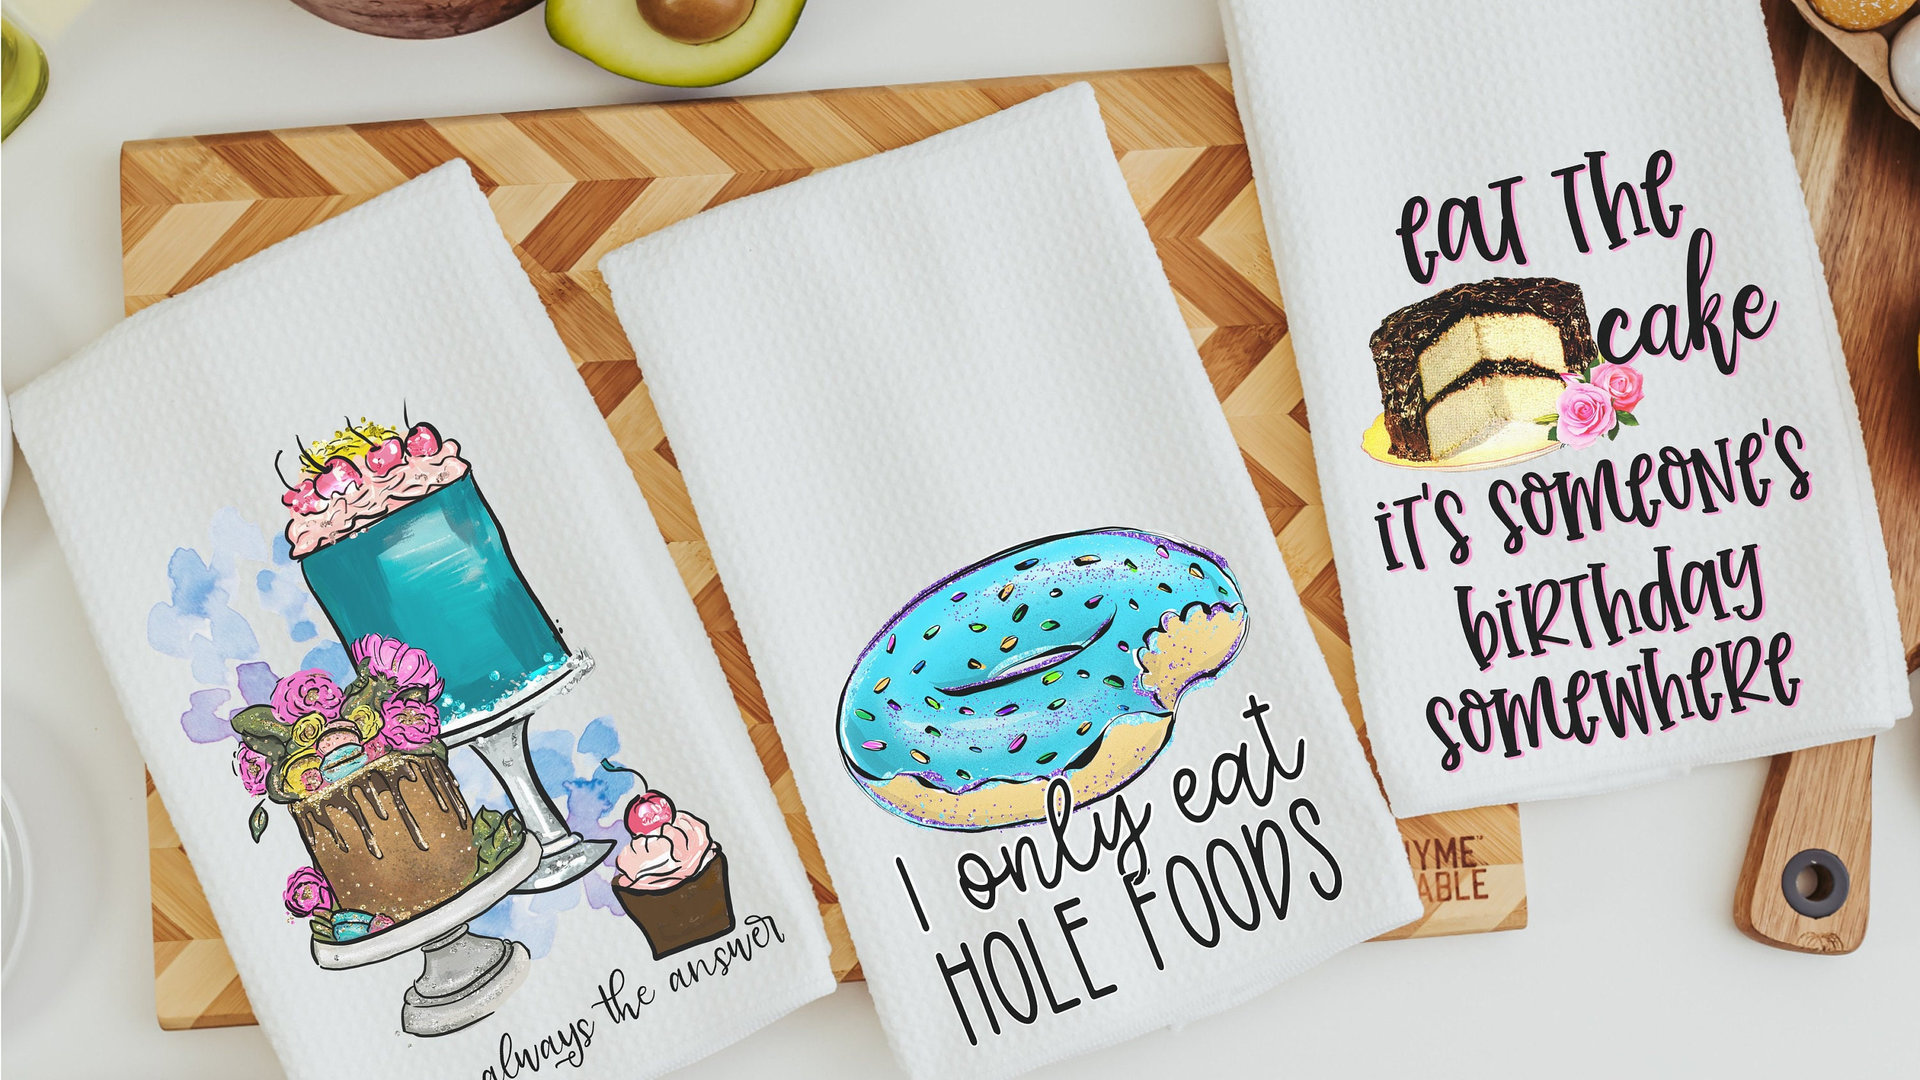 always the answer
I only eat
HOLE FOODS
eat the
cake
it's someone's
birthday
somewhere
YME
ABLE